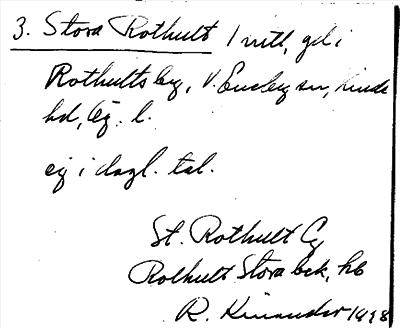 3. Stora Rothult 1 mtl, gd i
Rothults by, V. Eneby sn, Kinda
hd, Ög. l.
ej i dagl. tal.
St. Rothult Cg
Rothult Stora bek, hb
R. Kinander 1928